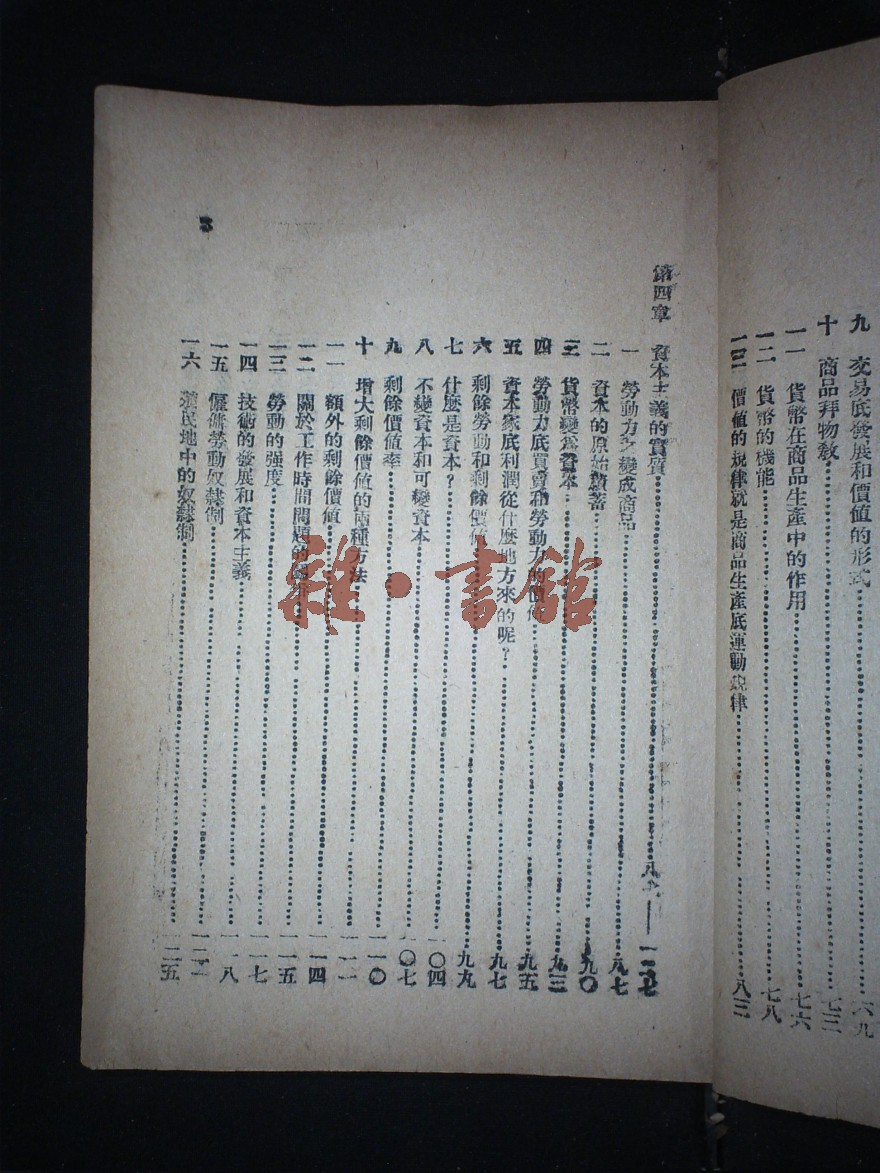 九 交易底發展和價值的形式 六九
十 商品拜物教 七三
一一 貨幣在商品生產中的作用 七六
一二 貨幣的機能 七八
一三 價值的規律就是商品生產底運動規律 八三
第四章 資本主義的實質
一 勞動力之變成商品 八七
二 資本的原始積蓄 九〇
三 貨幣變爲資本 九三
四 勞動力底買賣和勞動力的價值 九五
五 資本家底利潤從什麼地方來的呢? 九七
六 剩餘勞動和剩餘價值 九九
七 什麼是資本? 一〇四
八 不變資本和可變資本 一〇七
九 剩餘價值率 一一〇
十 增大剩餘價值的兩種方法 一一一
一一 額外的剩餘價值 一一四
一二 關於工作時間問題的 一一五
一三 勞動的强度 一一七
一四 技術的發展和資本主義 一一八
一五 僱傭勞動奴隸制
一六 殖民地中的奴隸制 一二五
3
雜·書館